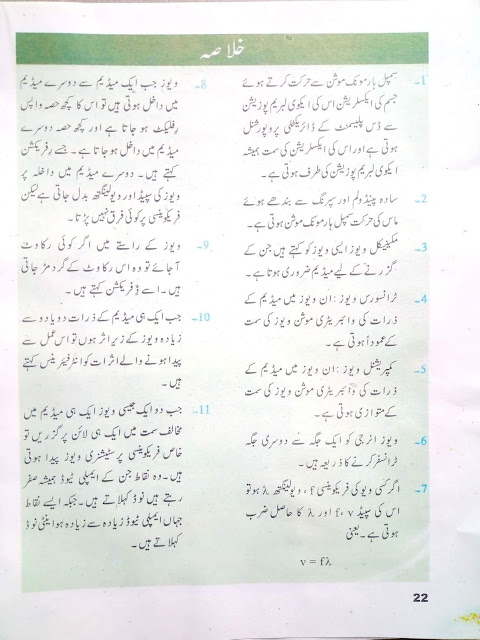 خلاصہ
1- سمپل ہارمونک موشن سے حرکت کرتے ہوئے
جسم کی ایکسلریشن اس کی ایکوی لبریم پوزیشن
سے ڈس پلیسمنٹ کے ڈائریکٹلی پروپورشنل
ہوتی ہے اور اس کی ایکسلریشن کی سمت ہمیشہ
ایکوی لبریم پوزیشن کی طرف ہوتی ہے۔
2- سادہ پنڈولم اور سپرنگ سے بندھے ہوئے
ماس کی حرکت سمپل ہارمونک موشن ہوتی ہے۔
3- مکینیکل ویوز ایسی ویوز کو کہتے ہیں جن کے
گزرنے کے لیے میڈیم ضروری ہوتا ہے۔
4- ٹرانسورس ویوز: ان ویوز میں میڈیم کے
ذرات کی وائبریٹری موشن ویوز کی سمت
کے عموداً ہوتی ہے۔
5- کمپریشنل ویوز: ان ویوز میں میڈیم کے
ذرات کی وائبریٹری موشن ویوز کی سمت
کے متوازی ہوتی ہے۔
6- ویوز انرجی کو ایک جگہ سے دوسری جگہ
ٹرانسفر کرنے کا ذریعہ ہیں۔
7- اگر کسی ویو کی فریکوئنسی f، ویولینگتھ λ ہو تو
اس کی سپیڈ v، f اور λ کا حاصل ضرب
ہوتی ہے۔ یعنی
v = fλ
8- ویوز جب ایک میڈیم سے دوسرے میڈیم
میں داخل ہوتی ہیں تو اس کا کچھ حصہ واپس
رفلیکٹ ہو جاتا ہے اور کچھ حصہ دوسرے
میڈیم میں داخل ہو جاتا ہے۔ جسے رفریکشن
کہتے ہیں۔ دوسرے میڈیم میں داخلہ پر
ویوز کی سپیڈ اور ویولینگتھ بدل جاتی ہے لیکن
فریکوئنسی پر کوئی فرق نہیں پڑتا۔
9- ویوز کے راستے میں اگر کوئی رکاوٹ
آ جائے تو وہ اس رکاوٹ کے گرد مڑ جاتی
ہیں۔ اسے ڈفریکشن کہتے ہیں۔
10- جب ایک ہی میڈیم کے ذرات دو یا دو سے
زیادہ ویوز کے زیر اثر ہوں تو اس عمل سے
پیدا ہونے والے اثرات کو انٹرفیئرینس کہتے
ہیں۔
11- جب دو ایک جیسی ویوز ایک ہی میڈیم میں
مخالف سمت میں ایک ہی لائن پر گزریں تو
خاص فریکوئنسی پر سٹیشنری ویوز پیدا ہوتی
ہیں۔ وہ نقاط جن کے ایمپلی ٹیوڈ ہمیشہ صفر
رہتے ہیں نوڈ کہلاتے ہیں۔ جبکہ ایسے نقاط
جہاں ایمپلی ٹیوڈ زیادہ سے زیادہ ہو اینٹی نوڈ
کہلاتے ہیں۔
22